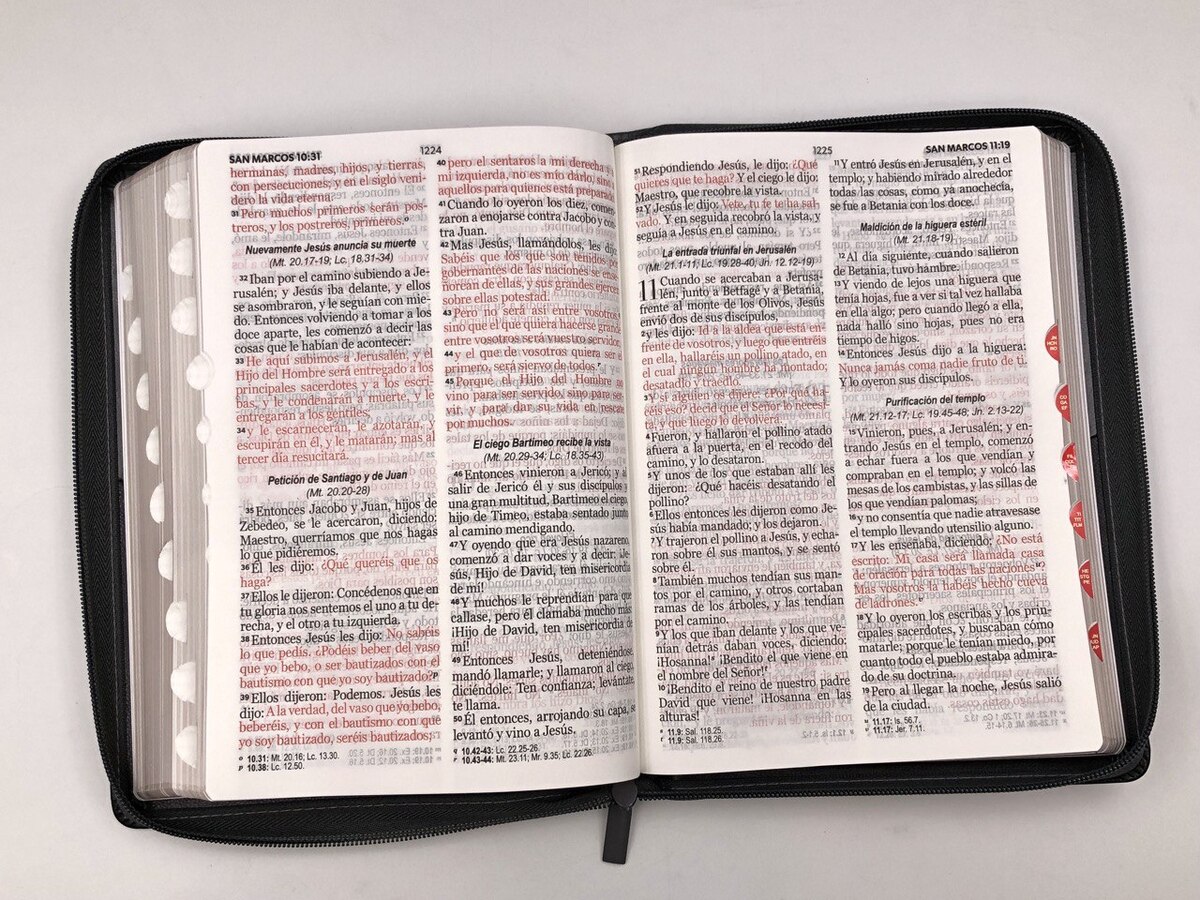 SAN MARCOS 10:31
1224
hermanas, madres, hijos, y tierras,
con persecuciones; y en el siglo veni-
dero la vida eterna.
31 Pero muchos primeros serán pos-
treros, y los postreros, primeros.o
Nuevamente Jesús anuncia su muerte
(Mt. 20.17-19; Lc. 18.31-34)
32 Iban por el camino subiendo a Je-
rusalén; y Jesús iba delante, y ellos
se asombraron, y le seguían con mie-
do. Entonces volviendo a tomar a los
doce aparte, les comenzó a decir las
cosas que le habían de acontecer:
33 He aquí subimos a Jerusalén, y el
Hijo del Hombre será entregado a los
principales sacerdotes y a los escri-
bas, y le condenarán a muerte, y le
entregarán a los gentiles;
34 y le escarnecerán, le azotarán, y
escupirán en él, y le matarán; mas al
tercer día resucitará.
Petición de Santiago y de Juan
(Mt. 20.20-28)
35 Entonces Jacobo y Juan, hijos de
Zebedeo, se le acercaron, diciendo:
Maestro, querríamos que nos hagas
lo que pidiéremos.
36 Él les dijo: ¿Qué queréis que os
haga?
37 Ellos le dijeron: Concédenos que en
tu gloria nos sentemos el uno a tu de-
recha, y el otro a tu izquierda.
38 Entonces Jesús les dijo: No sabéis
lo que pedís. ¿Podéis beber del vaso
que yo bebo, o ser bautizados con el
bautismo con que yo soy bautizado?p
39 Ellos dijeron: Podemos. Jesús les
dijo: A la verdad, del vaso que yo bebo,
beberéis, y con el bautismo con que
yo soy bautizado, seréis bautizados;
o 10.31: Mt. 20.16; Lc. 13.30.
p 10.38: Lc. 12.50.
40 pero el sentaros a mi derecha y a
mi izquierda, no es mío darlo, sino a
aquellos para quienes está preparado.
41 Cuando lo oyeron los diez, comen-
zaron a enojarse contra Jacobo y con-
tra Juan.
42 Mas Jesús, llamándolos, les dijo:
Sabéis que los que son tenidos por
gobernantes de las naciones se ense-
ñorean de ellas, y sus grandes ejercen
sobre ellas potestad.
43 Pero no será así entre vosotros,
sino que el que quiera hacerse grande
entre vosotros será vuestro servidor,
44 y el que de vosotros quiera ser el
primero, será siervo de todos.
45 Porque el Hijo del Hombre no
vino para ser servido, sino para ser-
vir, y para dar su vida en rescate
por muchos.
El ciego Bartimeo recibe la vista
(Mt. 20.29-34; Lc. 18.35-43)
46 Entonces vinieron a Jericó; y al
salir de Jericó él y sus discípulos y
una gran multitud, Bartimeo el ciego,
hijo de Timeo, estaba sentado junto
al camino mendigando.
47 Y oyendo que era Jesús nazareno,
comenzó a dar voces y a decir: ¡Je-
sús, Hijo de David, ten misericordia
de mí!
48 Y muchos le reprendían para que
callase, pero él clamaba mucho más:
¡Hijo de David, ten misericordia de
mí!
49 Entonces Jesús, deteniéndose,
mandó llamarle; y llamaron al ciego,
diciéndole: Ten confianza; levántate,
te llama.
50 Él entonces, arrojando su capa, se
levantó y vino a Jesús.
q 10.42-43: Lc. 22.25-26.
r 10.43-44: Mt. 23.11; Mr. 9.35; Lc. 22.26.
1225
SAN MARCOS 11:19
51 Respondiendo Jesús, le dijo: ¿Qué
quieres que te haga? Y el ciego le dijo:
Maestro, que recobre la vista.
52 Y Jesús le dijo: Vete, tu fe te ha sal-
vado. Y en seguida recobró la vista, y
seguía a Jesús en el camino.
La entrada triunfal en Jerusalén
(Mt. 21.1-11; Lc. 19.28-40; Jn. 12.12-19)
11 Cuando se acercaban a Jerusa-
lén, junto a Betfagé y a Betania,
frente al monte de los Olivos, Jesús
envió dos de sus discípulos,
2 y les dijo: Id a la aldea que está en-
frente de vosotros, y luego que entréis
en ella, hallaréis un pollino atado, en
el cual ningún hombre ha montado;
desatadlo y traedlo.
3 Y si alguien os dijere: ¿Por qué ha-
céis eso? decid que el Señor lo necesi-
ta, y que luego lo devolverá.
4 Fueron, y hallaron el pollino atado
afuera a la puerta, en el recodo del
camino, y lo desataron.
5 Y unos de los que estaban allí les
dijeron: ¿Qué hacéis desatando el
pollino?
6 Ellos entonces les dijeron como Je-
sús había mandado; y los dejaron.
7 Y trajeron el pollino a Jesús, y echa-
ron sobre él sus mantos, y se sentó
sobre él.
8 También muchos tendían sus man-
tos por el camino, y otros cortaban
ramas de los árboles, y las tendían
por el camino.
9 Y los que iban delante y los que ve-
nían detrás daban voces, diciendo:
¡Hosanna! ¡Bendito el que viene en
el nombre del Señor!
10 ¡Bendito el reino de nuestro padre
David que viene! ¡Hosanna en las
alturas!
11.9: Sal. 118.25.
11.9: Sal. 118.26.
11 Y entró Jesús en Jerusalén, y en el
templo; y habiendo mirado alrededor
todas las cosas, como ya anochecía,
se fue a Betania con los doce.
Maldición de la higuera estéril
(Mt. 21.18-19)
12 Al día siguiente, cuando salieron
de Betania, tuvo hambre.
13 Y viendo de lejos una higuera que
tenía hojas, fue a ver si tal vez hallaba
en ella algo; pero cuando llegó a ella,
nada halló sino hojas, pues no era
tiempo de higos.
14 Entonces Jesús dijo a la higuera:
Nunca jamás coma nadie fruto de ti.
Y lo oyeron sus discípulos.
Purificación del templo
(Mt. 21.12-17; Lc. 19.45-48; Jn. 2.13-22)
15 Vinieron, pues, a Jerusalén; y en-
trando Jesús en el templo, comenzó
a echar fuera a los que vendían y
compraban en el templo; y volcó las
mesas de los cambistas, y las sillas de
los que vendían palomas;
16 y no consentía que nadie atravesase
el templo llevando utensilio alguno.
17 Y les enseñaba, diciendo: ¿No está
escrito: Mi casa será llamada casa
de oración para todas las naciones?
Mas vosotros la habéis hecho cueva
de ladrones.
18 Y lo oyeron los escribas y los prin-
cipales sacerdotes, y buscaban cómo
matarle; porque le tenían miedo, por
cuanto todo el pueblo estaba admira-
do de su doctrina.
19 Pero al llegar la noche, Jesús salió
de la ciudad.
11.17: Is. 56.7.
11.17: Jer. 7.11.